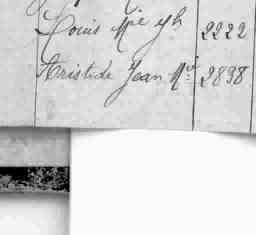 Louis Mie yh 2222
Aristide Jean Mie 2838